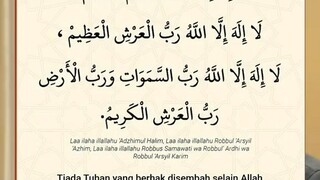 لَا إِلَهَ إِلَّا اللَّهُ رَبُّ الْعَرْشِ الْعَظِيْمِ ،
لَا إِلَهَ إِلَّا اللَّهُ رَبُّ السَّمَوَاتِ وَرَبُّ الْأَرْضِ
رَبُّ الْعَرْشِ الْكَرِيْمُ.
Laa ilaha illallahu 'Adzhimul Halim, Laa ilaha illallahu Robbul 'Arsyil
'Azhim, Laa ilaha illallahu Robbus Samawati wa Robbul 'Ardhi wa
Robbul 'Arsyil Karim
Tiada Tuhan yang berhak disembah selain Allah